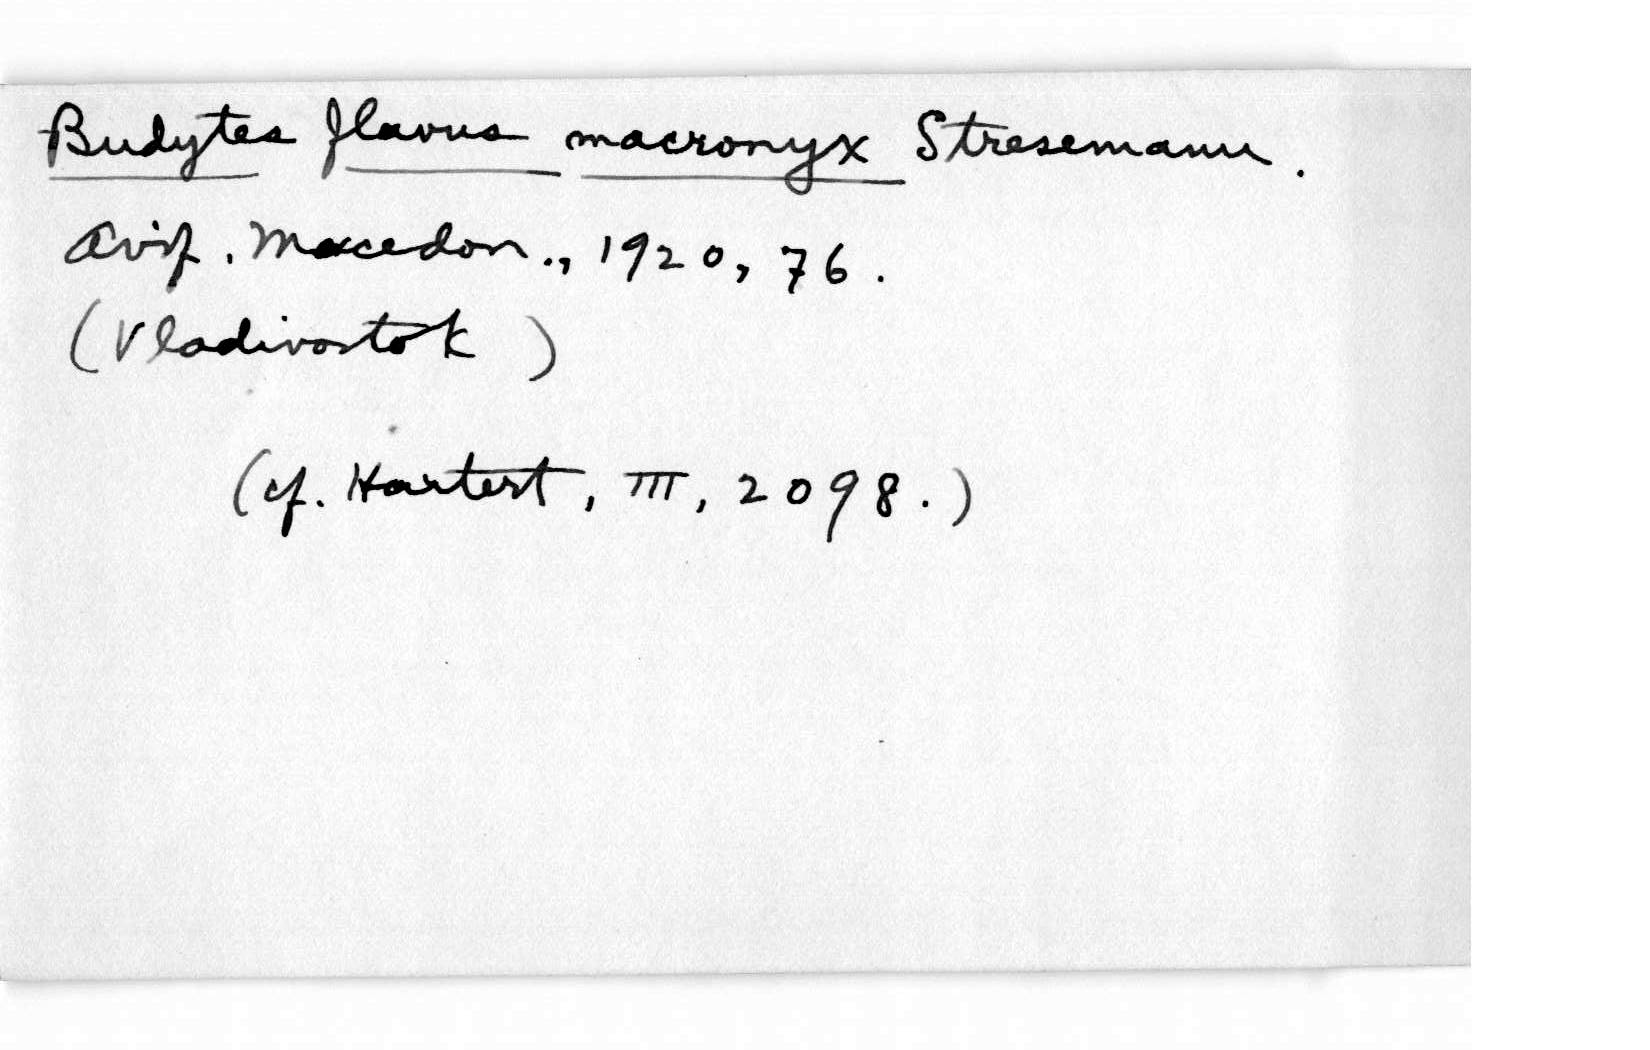 Budytes flavus macronyx Stresemann.
Avif. Macedon., 1920, 76.
(Vladivostok)
(cf. Hartert, III, 2098.)